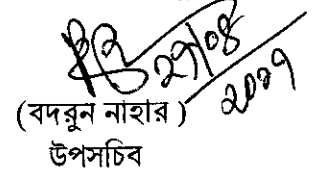 ২৭/০৪
২০২৭
(বদরুন নাহার)
উপসচিব